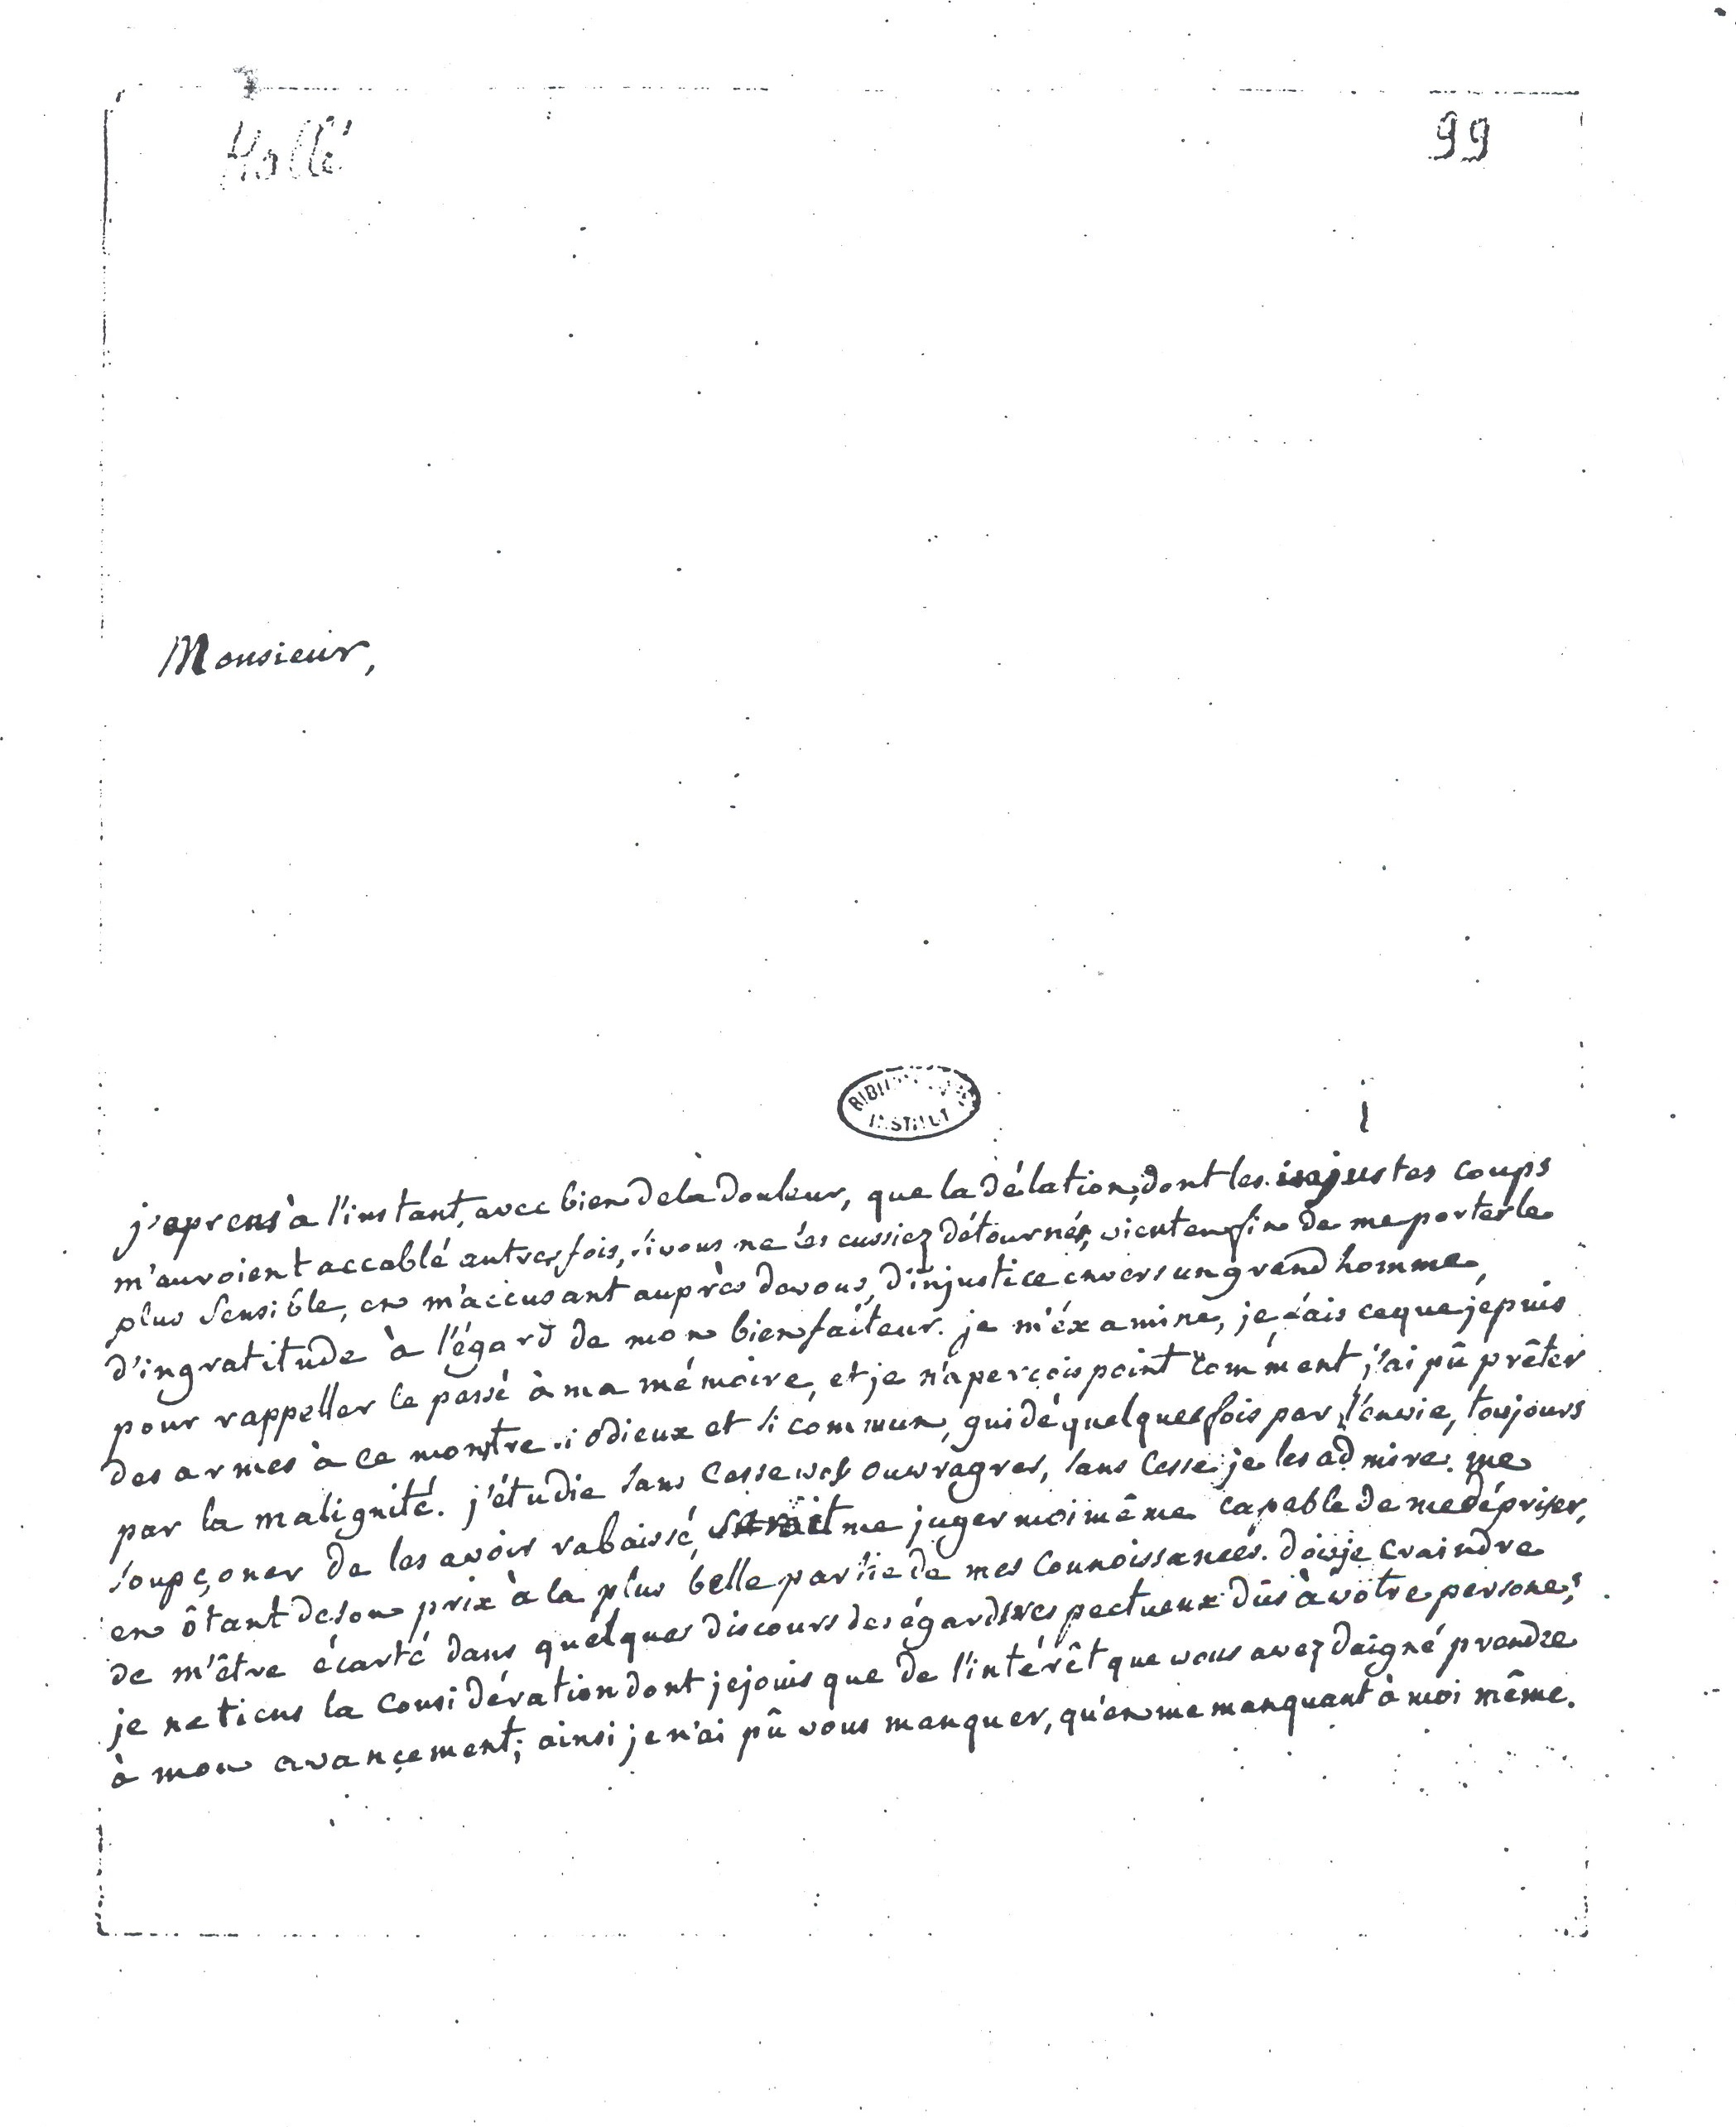 Hallé
99
Monsieur,
BIBLIOTHÈQUE
INSTITUT
j'aprens à l'instant, avec bien de la douleur, que la délation, dont les injustes coups
m'auroient accablé autresfois, si vous ne les eussiez détournés, vient enfin de me porter le
plus sensible, en m'accusant auprès de vous, d'injustice envers un grand homme,
d'ingratitude à l'égard de mon bienfaiteur. je m'éxamine, je fais ce que je puis
pour rappeller le passé à ma mémoire, et je n'aperçois point comment j'ai pû prêter
des armes à ce monstre si odieux et si commun, guidé quelquesfois par l'envie, toujours
par la malignité. j'étudie sans cesse vos ouvrages, sans cesse je les admire. me
soupçoner de les avoir rabaissé, seroit me juger moi même capable de me dépriser,
en ôtant de son prix à la plus belle partie de mes connoissances. dois je craindre
de m'être écarté dans quelques discours des égards respectueux dûs à votre persone?
je ne tiens la considération dont je jouis que de l'intérêt que vous avez daigné prendre
à mon avançement; ainsi je n'ai pû vous manquer, qu'en me manquant à moi même.